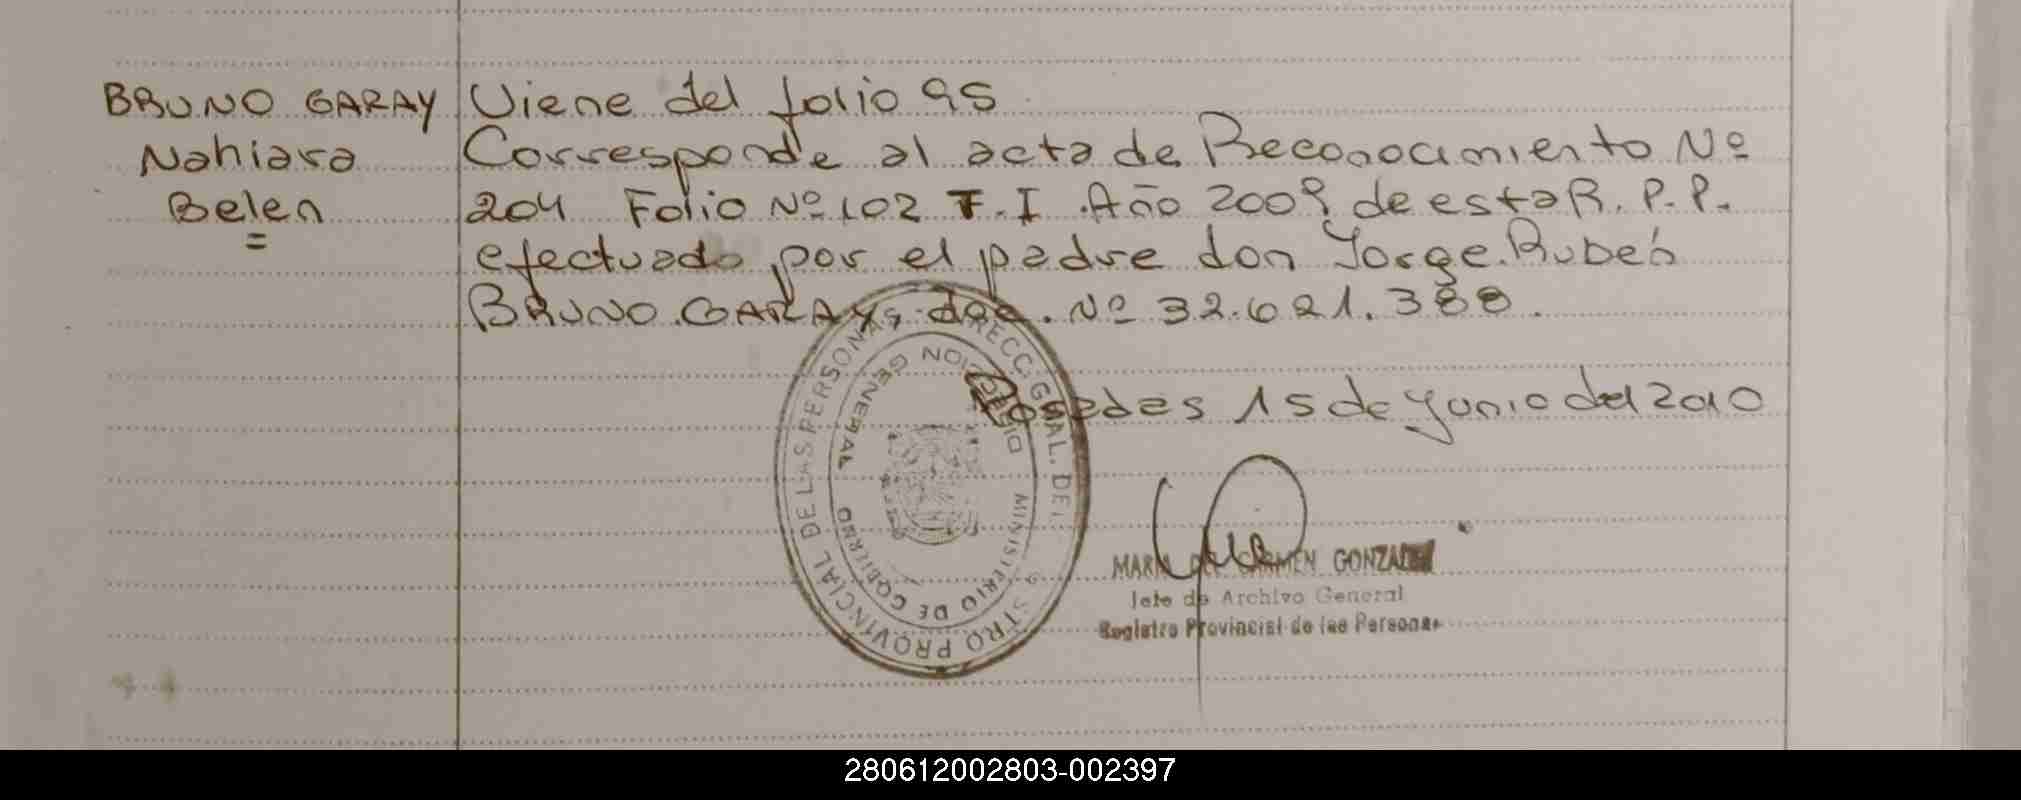 BRUNO GARAY
Nahiara
Belen
=
Viene del folio 95
Corresponde al acta de Reconocimiento Nº
204 Folio Nº 102 T. I Año 2009 de esta R. P. P.
efectuado por el padre don Jorge Rubén
BRUNO GARAY, doc. Nº 32.621.388.
Posadas 15 de Junio del 2010
DIRECC. GRAL. DEL REGISTRO PROVINCIAL DE LAS PERSONAS
MINISTERIO DE GOBIERNO
DIRECCION GENERAL
MARIA DEL CARMEN GONZALEZ
Jefe de Archivo General
Registro Provincial de las Personas
280612002803-002397